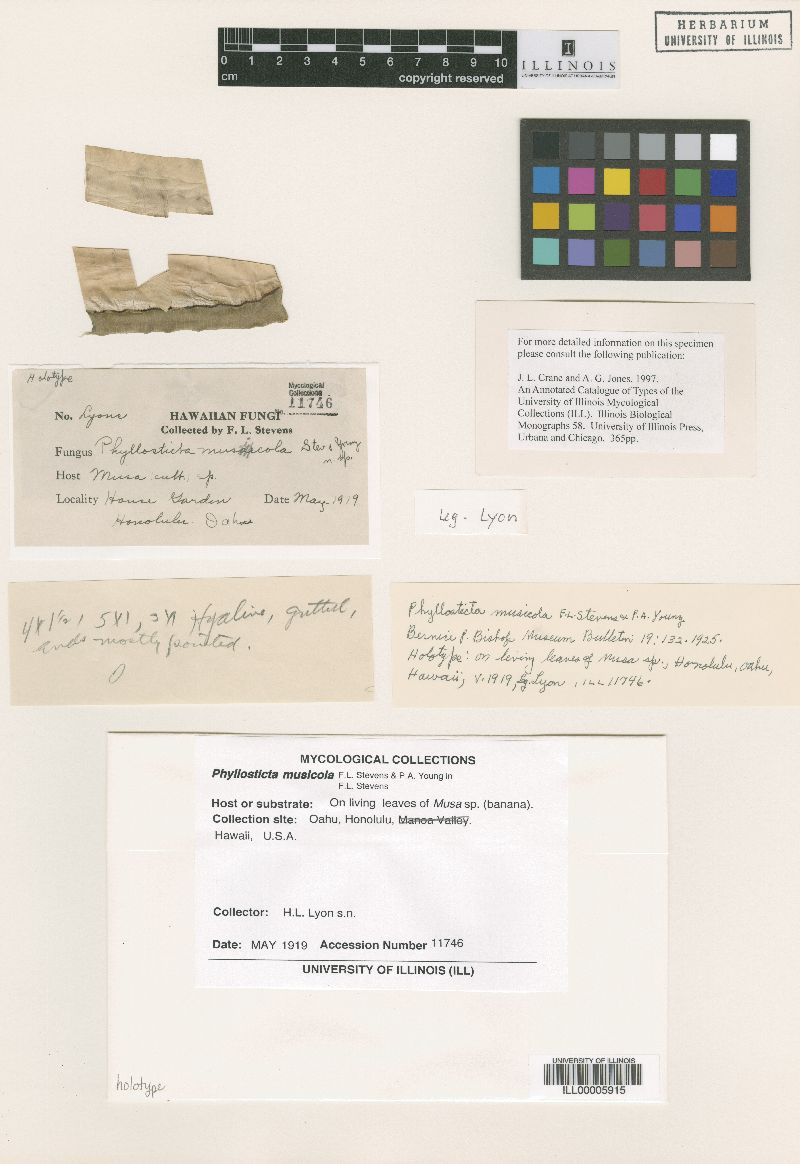 HERBARIUM
UNIVERSITY OF ILLINOIS
0 1 2 3 4 5 6 7 8 9 10
cm
copyright reserved
I
ILLINOIS
For more detailed information on this specimen
please consult the following publication:
J. L. Crane and A. G. Jones. 1997.
An Annotated Catalogue of Types of the
University of Illinois Mycological
Collections (ILL). Illinois Biological
Monographs 58. University of Illinois Press,
Urbana and Chicago. 365pp.
Holotype
Mycological
Collections
No. 11746
No. Lyons
HAWAIIAN FUNGI
Collected by F. L. Stevens
Fungus Phyllosticta musicola Stev & Young
n sp.
Host Musa cult. sp.
Locality House Garden Date May 1919
Honolulu. Oahu
Leg. Lyon
4x1½, 5x1, 3x1 Hyaline, guttul,
ends mostly pointed.
Phyllosticta musicola F.L. Stevens & P.A. Young
Bernice P. Bishop Museum Bulletin 19:132.1925.
Holotype: on living leaves of Musa sp., Honolulu, Oahu,
Hawaii, V.1919, Lg. Lyon, ILL 11746.
MYCOLOGICAL COLLECTIONS
Phyllosticta musicola F.L. Stevens & P.A. Young in
F.L. Stevens
Host or substrate: On living leaves of Musa sp. (banana).
Collection site: Oahu, Honolulu, Manoa Valley.
Hawaii, U.S.A.
Collector: H.L. Lyon s.n.
Date: MAY 1919 Accession Number 11746
UNIVERSITY OF ILLINOIS (ILL)
holotype
UNIVERSITY OF ILLINOIS
ILL00005915